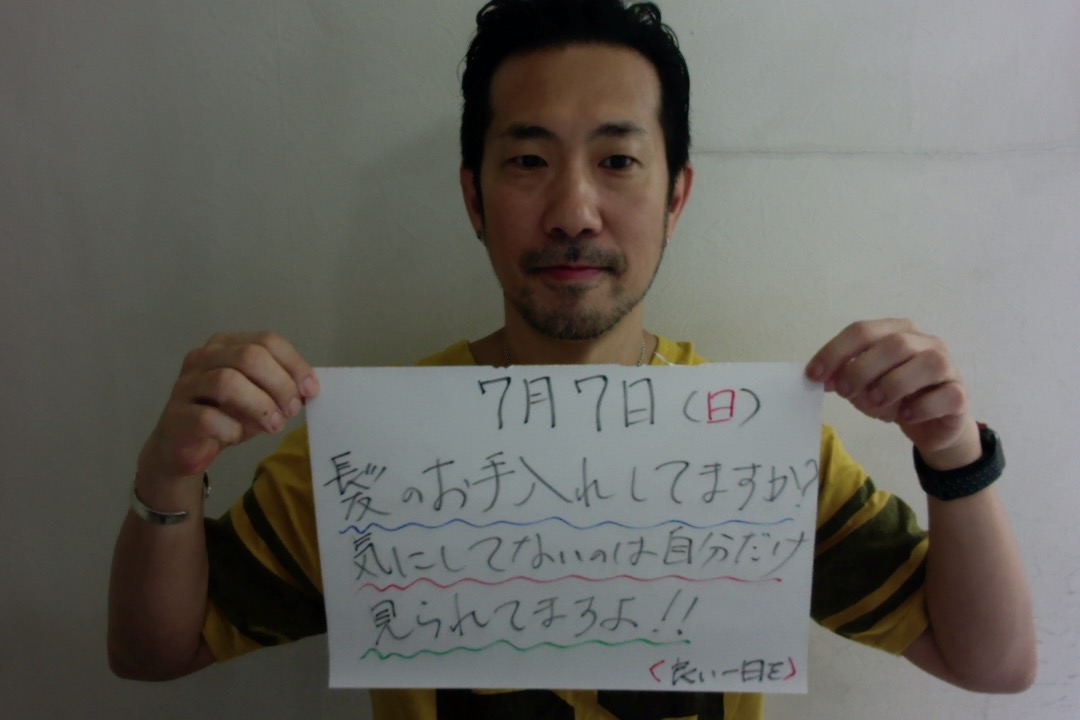 7月7日(日)
髪のお手入れしてますか?
気にしてないのは自分だけ
見られてますよ!!
(良い一日を)